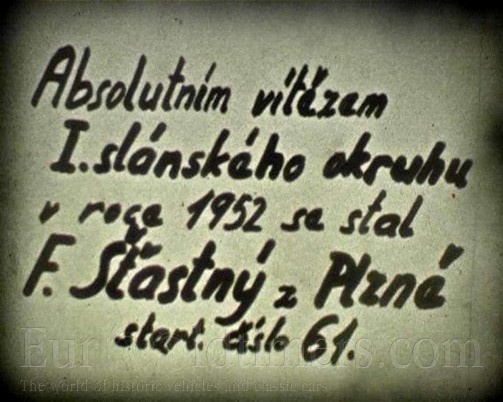 Absolutním vítězem
I. slánského okruhu
v roce 1952 se stal
F. Šťastný z Plzně
start. číslo 61.
The world of historic vehicles and classic cars